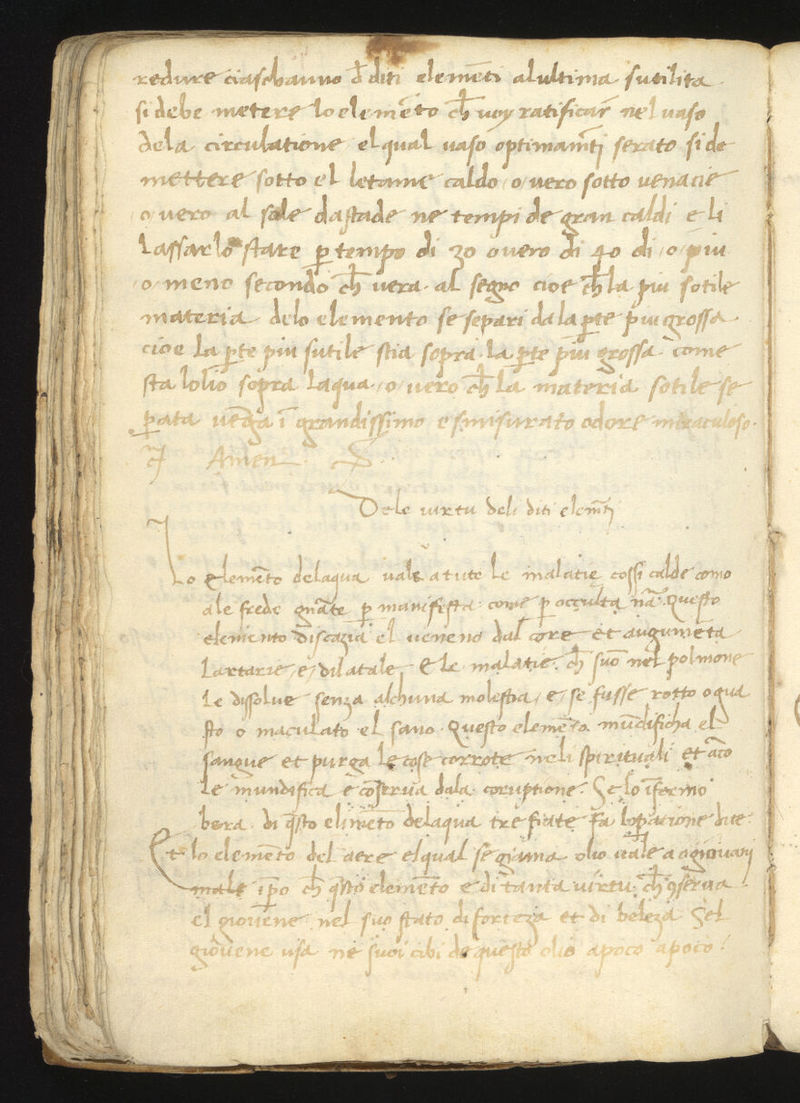 redure ciaschauno d̄ diti elemēti alultima sutilita
si debe metere lo elemēto ch̄ voy ratificar nel vaso
dela circulatione el qual vaso optimamēti serato si de
mettere sotto el letame caldo o vero sotto venacie
o vero al sole dastade ne tempi de gran caldi e li
lassarlo stare p̱ tempo di 30 overo di 40 di o piu
o meno secondo ch̄ vera al segno cioe ch̄ la piu sotile
materia delo elemento se separi dala p̱te piu grossa
cioe la p̱te piu sutile stia sopra la p̱te piu grossa come
sta lolio sopra laqua o vero ch̄ la materia sotile se
p̱ata vēga ī grandissimo e smisurato odore miraculoso
Amen
Dele virtu deli diti elemēti
Lo elemēto delaqua vale a tute le malatie cossi calde como
ale frede p̱ manifesta come p̱ occulta nā. Questo
elemento discazia el veneno dal core et augumēta
lartarie e dilatale E le malatie ch̄ suō nel polmone
le dissolve senza alchuna molestia e se fusse rotto o gua
sto o maculato el sano Questo elemēto mūdificha el
sangue et purga le cose corrote neli spirituali et
le mundifica e cōserva dala coruptione. Se lo īfermo
bera di q̄sto elimēto delaqua tre fiate fa lop̱acione
Et lo elemēto del aere el qual se giama olio vale a
male īp̱o ch̄ q̄sto elemēto e di tanta virtu ch̄ ꝯserva
el giovene nel suo stato di forteza et di beleza Sel
giovene usa ne suoi cibi de questo olio apoco apoco